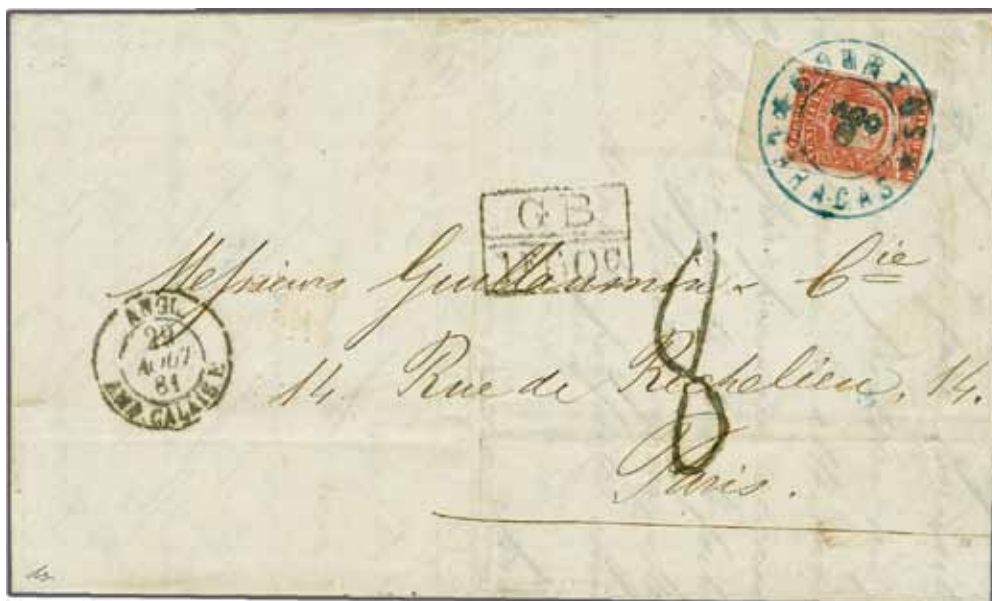 CORREOS ★ CARACAS ★
GB
1F 60c
Messieurs Guillaumin & Cie
14 Rue de Richelieu. 14.
Paris.
8
ANGL.
29
AOUT
61
AMB. CALAIS E